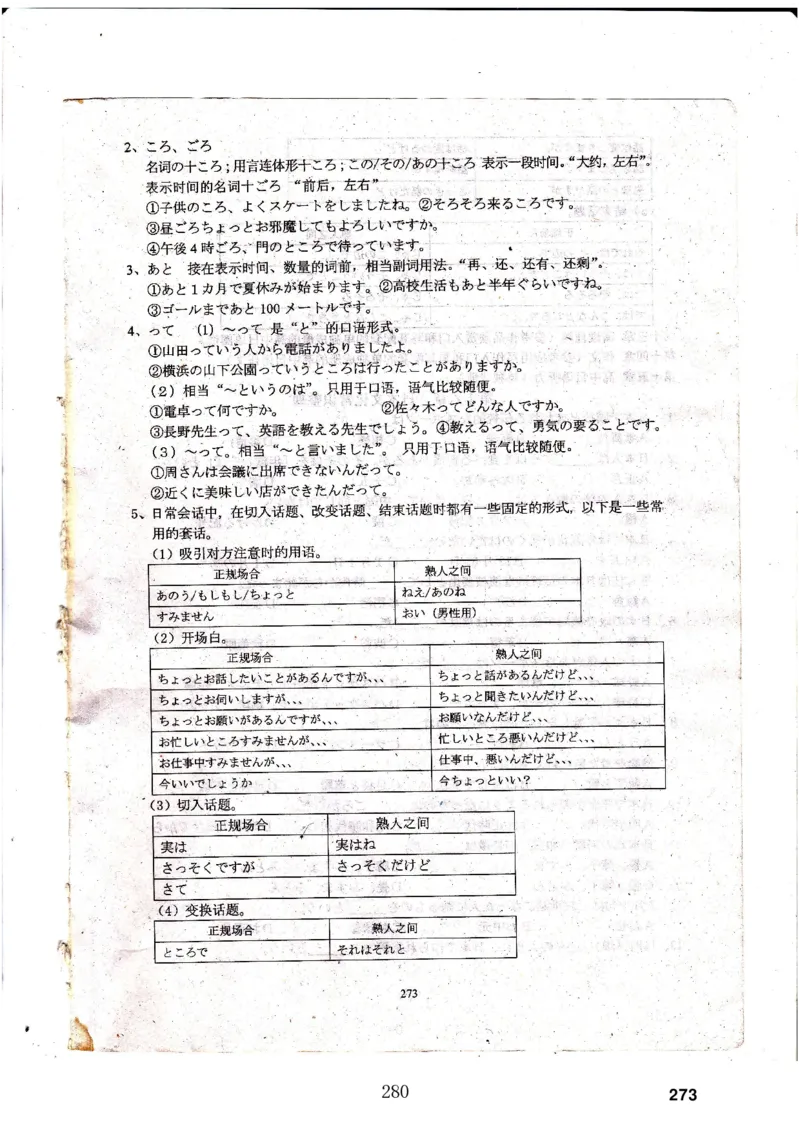 2、ころ、ごろ
名词の十ころ；用言连体形十ころ；この/その/あの十ころ 表示一段时间。“大约，左右”。
表示时间的名词十ごろ “前后，左右”
①子供のころ、よくスケートをしましたね。②そろそろ来るころです。
③昼ごろちょっとお邪魔してもよろしいですか。
④午後４時ごろ、門のところで待っています。
3、あと 接在表示时间、数量的词前，相当副词用法。“再、还、还有、还剩”。
①あと１カ月で夏休みが始まります。②高校生活もあと半年ぐらいですね。
③ゴールまであと 100 メートルです。
4、って （1）～って 是“と”的口语形式。
①山田っていう人から電話がありましたよ。
②横浜の山下公園っていうところは行ったことがありますか。
（2）相当“～というのは”。只用于口语，语气比较随便。
①電卓って何ですか。 ②佐々木ってどんな人ですか。
③長野先生って、英語を教える先生でしょう。④教えるって、勇気の要ることです。
（3）～って。相当“～と言いました”。 只用于口语，语气比较随便。
①周さんは会議に出席できないんだって。
②近くに美味しい店ができたんだって。
5、日常会话中，在切入话题、改变话题、结束话题时都有一些固定的形式，以下是一些常
用的套话。
（1）吸引对方注意时的用语。
正规场合 熟人之间
あのう/もしもし/ちょっと ねえ/あのね
すみません おい（男性用）
（2）开场白。
正规场合 熟人之间
ちょっとお話したいことがあるんですが、、、 ちょっと話があるんだけど、、、
ちょっとお伺いしますが、、、 ちょっと聞きたいんだけど、、、
ちょっとお願いがあるんですが、、、 お願いなんだけど、、、
お忙しいところすみませんが、、、 忙しいところ悪いんだけど、、、
お仕事中すみませんが、、、 仕事中、悪いんだけど、、、
今いいでしょうか 今ちょっといい？
（3）切入话题。
正规场合 熟人之间
実は 実はね
さっそくですが さっそくだけど
さて
（4）变换话题。
正规场合 熟人之间
ところで それはそれと
273
280
273